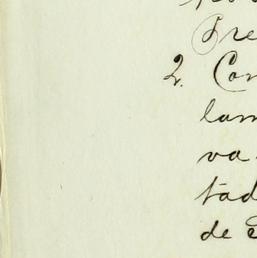 Fre
2. Con
lam
va
tad
de